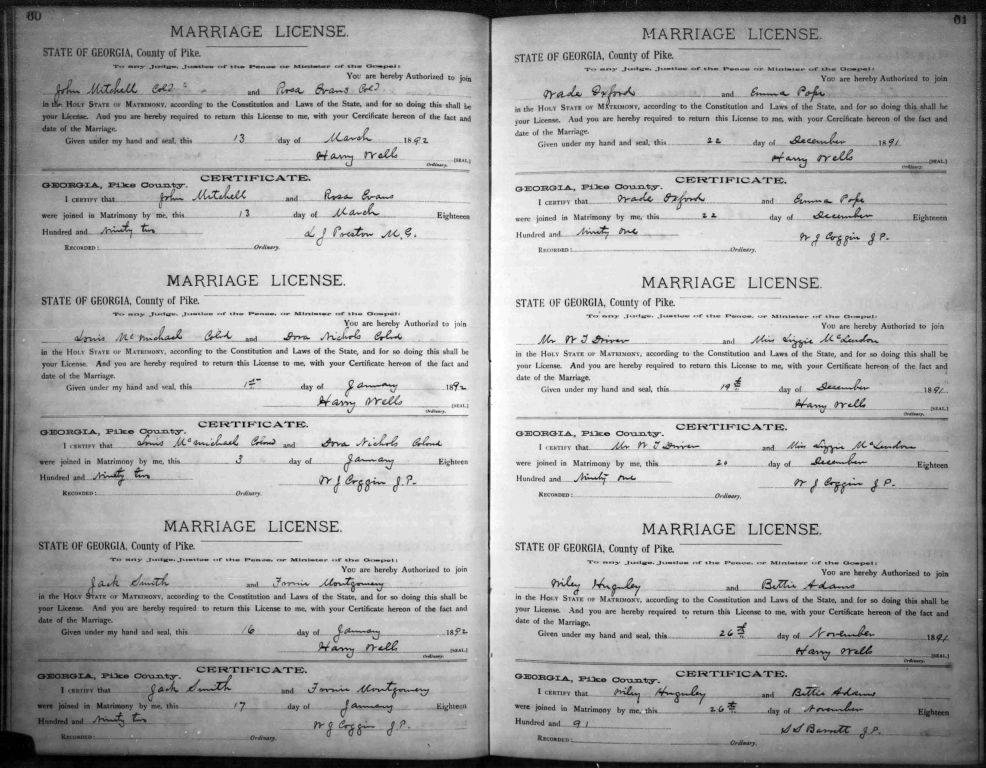 60
MARRIAGE LICENSE.
STATE OF GEORGIA, County of Pike.
To any Judge, Justice of the Peace or Minister of the Gospel:
You are hereby Authorized to join
John Mitchell Cold and Rosa Evans Cold
in the Holy State of Matrimony, according to the Constitution and Laws of the State, and for so doing this shall be
your License. And you are hereby required to return this License to me, with your Certificate hereon of the fact and
date of the Marriage.
Given under my hand and seal, this 13 day of March 1892
Harry Wells [SEAL.]
Ordinary.
CERTIFICATE.
GEORGIA, Pike County.
I certify that John Mitchell and Rosa Evans
were joined in Matrimony by me, this 13 day of March Eighteen
Hundred and Ninety two L J Preston M.G.
Recorded: Ordinary.
MARRIAGE LICENSE.
STATE OF GEORGIA, County of Pike.
To any Judge, Justice of the Peace, or Minister of the Gospel:
You are hereby Authorized to join
Louis McMichael Colid and Dora Nichols Colid
in the Holy State of Matrimony, according to the Constitution and Laws of the State, and for so doing this shall be
your License. And you are hereby required to return this License to me, with your Certificate hereon of the fact and
date of the Marriage.
Given under my hand and seal, this 1st day of January 1892
Harry Wells [SEAL.]
Ordinary.
CERTIFICATE.
GEORGIA, Pike County.
I certify that Louis McMichael Colord and Dora Nichols Colord
were joined in Matrimony by me, this 3 day of January Eighteen
Hundred and Ninety two W J Coggin J.P.
Recorded: Ordinary.
MARRIAGE LICENSE.
STATE OF GEORGIA, County of Pike.
To any Judge, Justice of the Peace, or Minister of the Gospel:
You are hereby Authorized to join
Jack Smith and Fannie Montgomery
in the Holy State of Matrimony, according to the Constitution and Laws of the State, and for so doing this shall be
your License. And you are hereby required to return this License to me, with your Certificate hereon of the fact and
date of the Marriage.
Given under my hand and seal, this 16 day of January 1892
Harry Wells [SEAL.]
Ordinary.
CERTIFICATE.
GEORGIA, Pike County.
I certify that Jack Smith and Fannie Montgomery
were joined in Matrimony by me, this 17 day of January Eighteen
Hundred and Ninety two W J Coggin J.P.
Recorded: Ordinary.
61
MARRIAGE LICENSE.
STATE OF GEORGIA, County of Pike.
To any Judge, Justice of the Peace or Minister of the Gospel:
You are hereby Authorized to join
Wade Oxford and Emma Pope
in the Holy State of Matrimony, according to the Constitution and Laws of the State, and for so doing this shall be
your License. And you are hereby required to return this License to me, with your Cercificate hereon of the fact and
date of the Marriage.
Given under my hand and seal, this 22 day of December 1891
Harry Wells [SEAL.]
Ordinary.
CERTIFICATE.
GEORGIA, Pike County.
I certify that Wade Oxford and Emma Pope
were joined in Matrimony by me, this 22 day of December Eighteen
Hundred and Ninety one W J Coggin J.P.
Recorded: Ordinary.
MARRIAGE LICENSE.
STATE OF GEORGIA, County of Pike.
To any Judge, Justice of the Peace, or Minister of the Gospel:
You are hereby Authorized to join
Mr. W T Driver and Miss Lizzie McLendon
in the Holy State of Matrimony, according to the Constitution and Laws of the State, and for so doing this shall be
your License. And you are hereby required to return this License to me, with your Certificate hereon of the fact and
date of the Marriage.
Given under my hand and seal, this 19th day of December 1891
Harry Wells [SEAL.]
Ordinary.
CERTIFICATE.
GEORGIA, Pike County.
I certify that Mr. W T Driver and Miss Lizzie McLendon
were joined in Matrimony by me, this 20 day of December Eighteen
Hundred and Ninety one W J Coggin J.P.
Recorded: Ordinary.
MARRIAGE LICENSE.
STATE OF GEORGIA, County of Pike.
To any Judge, Justice of the Peace, or Minister of the Gospel:
You are hereby Authorized to join
Wiley Hugnley and Bettie Adams
in the Holy State of Matrimony, according to the Constitution and Laws of the State, and for so doing this shall be
your License. And you are hereby required to return this License to me, with your Certificate hereon of the fact and
date of the Marriage.
Given under my hand and seal, this 26th day of November 1891
Harry Wells [SEAL.]
Ordinary.
CERTIFICATE.
GEORGIA, Pike County.
I certify that Wiley Hugnley and Bettie Adams
were joined in Matrimony by me, this 26th day of November Eighteen
Hundred and 91 S S Barrett J.P.
Recorded: Ordinary.